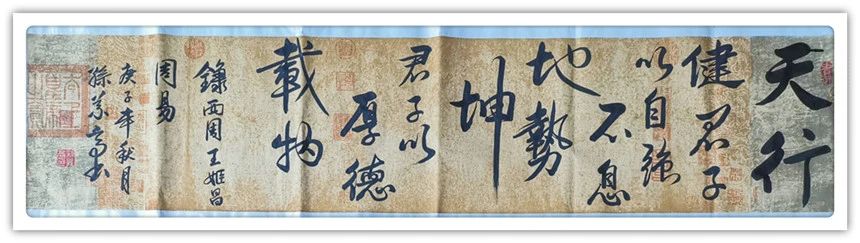 天行
健君子
以自强
不息
地勢
坤
君子以
厚德
載物
錄西周王姬昌
周易
庚子年秋月